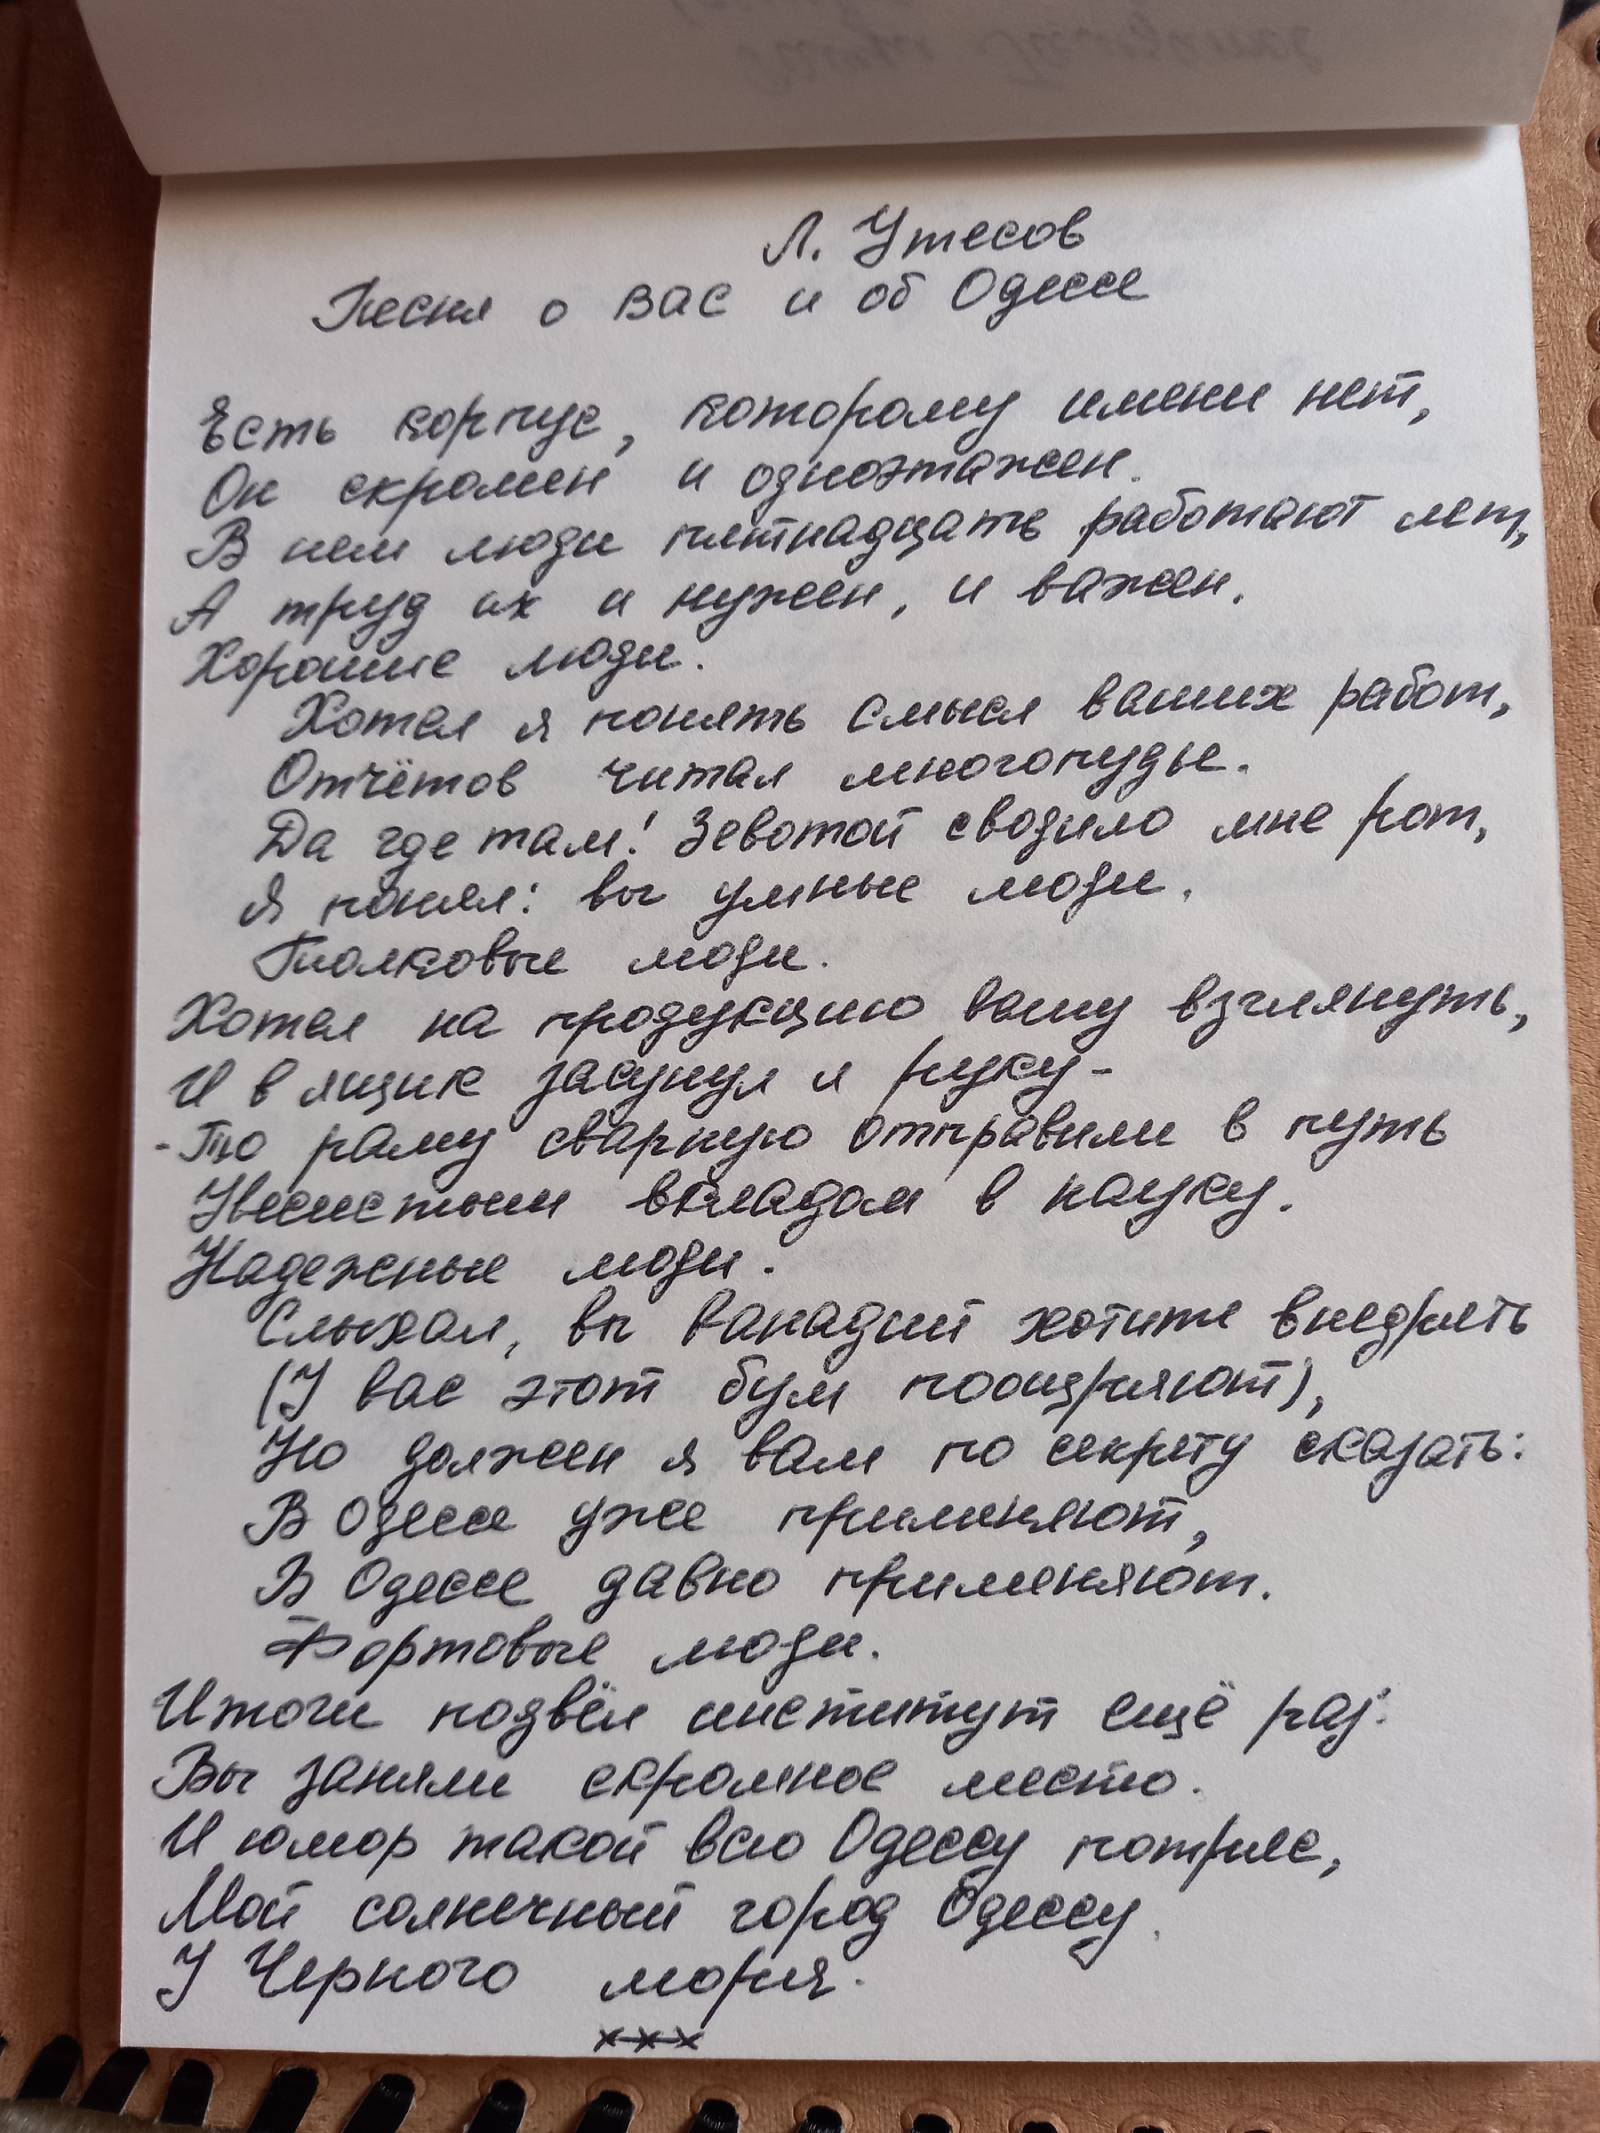 Л. Утесов
Песня о вас и об Одессе
Есть корпус, которому имени нет,
Он скромен и одноэтажен.
В нем люди пятнадцать работают лет,
А труд их и нужен, и важен.
Хорошие люди.
Хотел я понять смысл ваших работ,
Отчётов читал многопудье.
Да где там! Зевотой сводило мне рот,
Я понял: вы умные люди.
Толковые люди.
Хотел на продукцию вашу взглянуть,
И в ящик засунул я руку –
- То раму сварную отправили в путь
Увесистым вкладом в науку.
Надежные люди.
Слыхал, вы ванадий хотите внедрять
(У вас этот бум поощряют),
Но должен я вам по секрету сказать:
В Одессе уже применяют,
В Одессе давно применяют.
Фортовые люди.
Итоги подвёл институт ещё раз:
Вы заняли скромное место.
И юмор такой всю Одессу потряс,
Мой солнечный город Одессу.
У Черного моря.
х-х-х